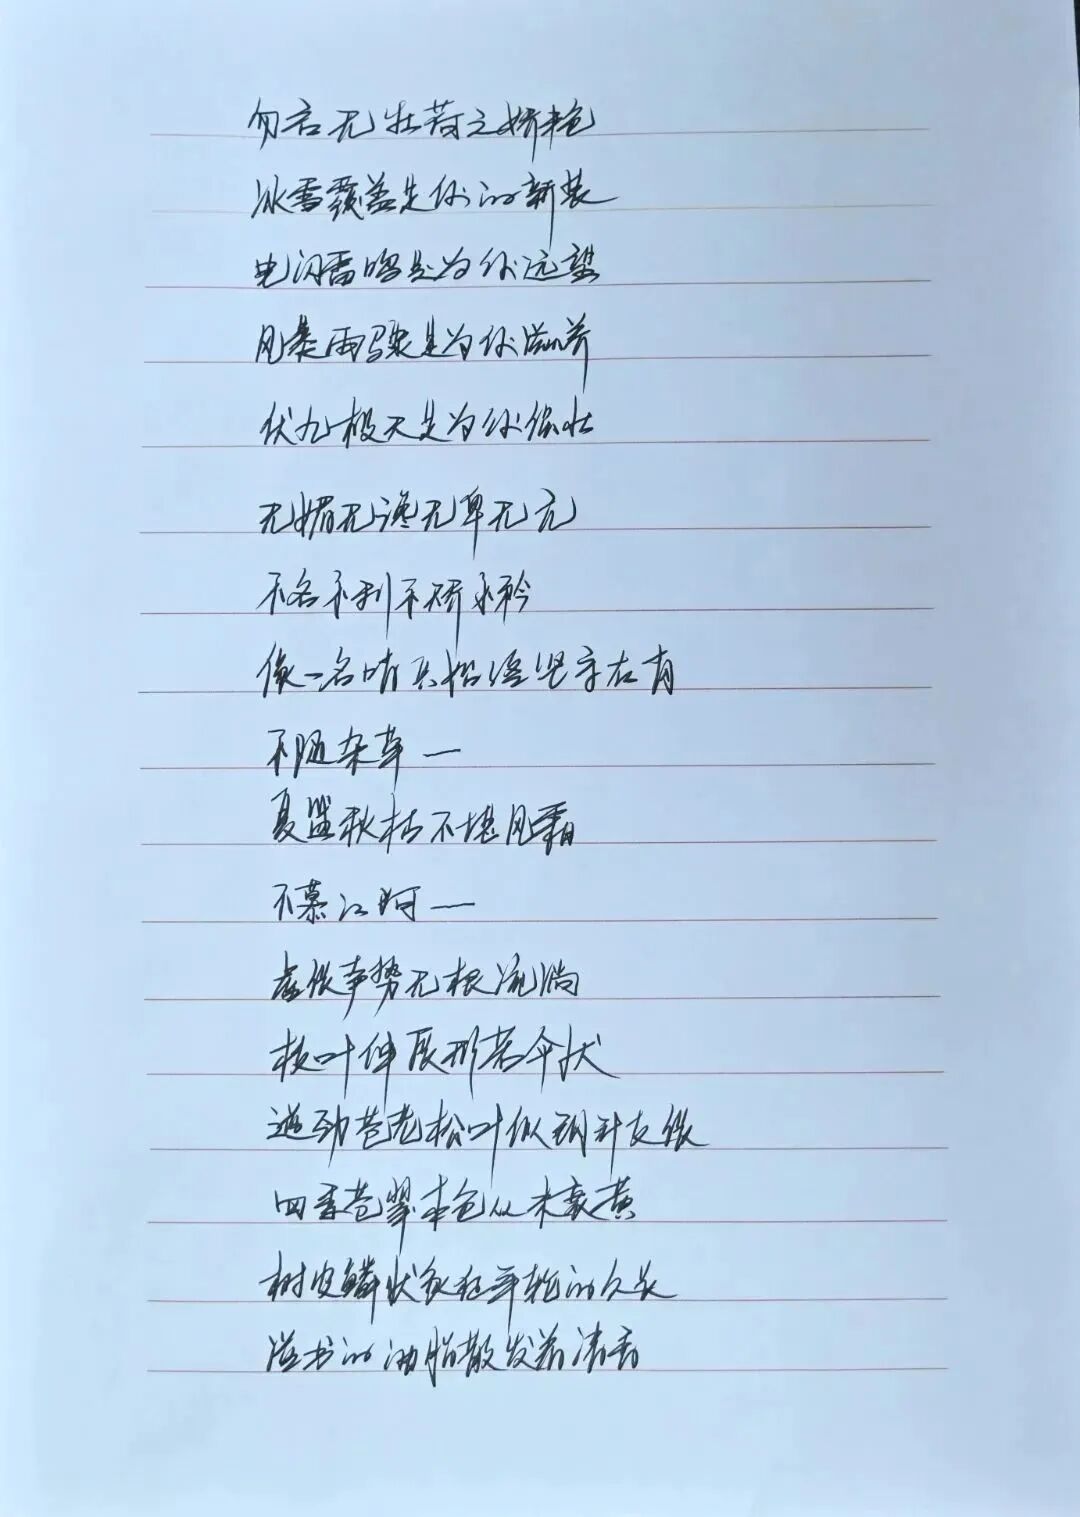 勿言无牡荷之娇艳
冰雪覆盖是你的新装
电闪雷鸣是为你远望
风暴雨骤是为你滋养
伏九极天是为你强壮
无媚无谗无卑无亢
不名不利不娇不矜
像一名哨兵始终坚守在肩
不随杂草一
夏盛秋枯不堪风霜
不慕江河一
虚张声势无根流淌
枝叶伸展形若伞状
遒劲苍老松叶似钢针支张
四季苍翠本色从未衰黄
树皮鳞状象征年轮的久长
溢出的油脂散发着清香